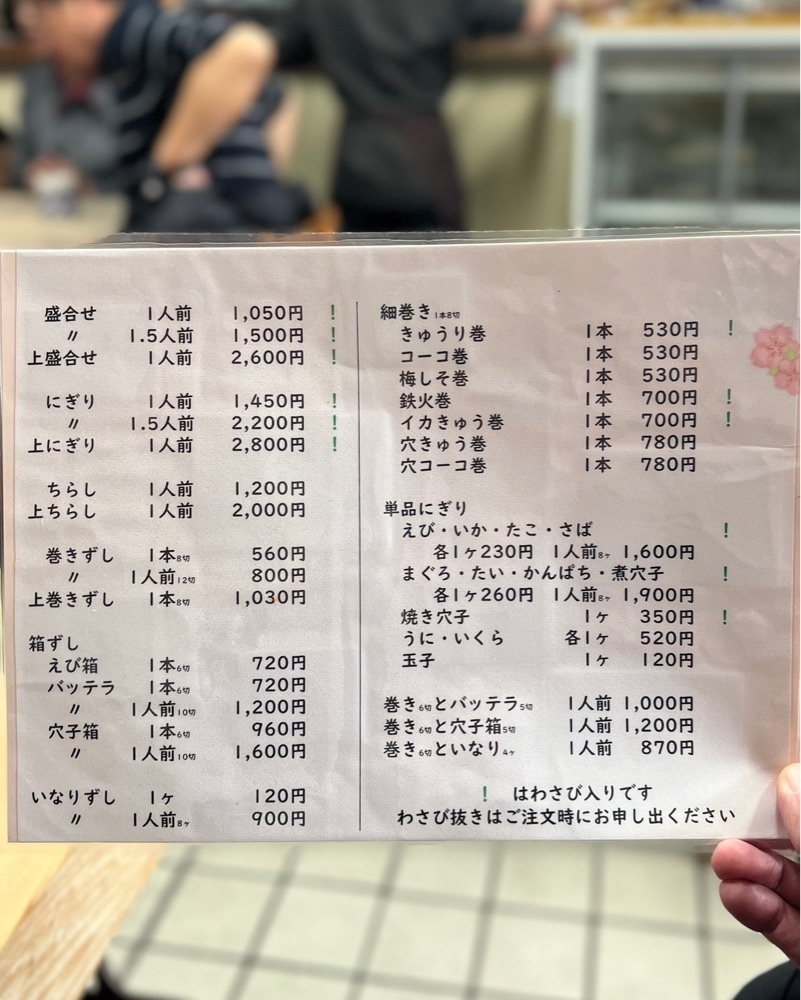 盛合せ 1人前 1,050円 !
〃 1.5人前 1,500円 !
上盛合せ 1人前 2,600円 !
にぎり 1人前 1,450円 !
〃 1.5人前 2,200円 !
上にぎり 1人前 2,800円 !
ちらし 1人前 1,200円
上ちらし 1人前 2,000円
巻きずし 1本8切 560円
〃 1人前12切 800円
上巻きずし 1本8切 1,030円
箱ずし
えび箱 1本6切 720円
バッテラ 1本6切 720円
〃 1人前10切 1,200円
穴子箱 1本6切 960円
〃 1人前10切 1,600円
いなりずし 1ヶ 120円
〃 1人前8ヶ 900円
細巻き1本8切
きゅうり巻 1本 530円 !
コーコ巻 1本 530円
梅しそ巻 1本 530円
鉄火巻 1本 700円 !
イカきゅう巻 1本 700円 !
穴きゅう巻 1本 780円
穴コーコ巻 1本 780円
単品にぎり
えび・いか・たこ・さば !
各1ヶ230円 1人前8ヶ 1,600円
まぐろ・たい・かんぱち・煮穴子 !
各1ヶ260円 1人前8ヶ 1,900円
焼き穴子 1ヶ 350円 !
うに・いくら 各1ヶ 520円
玉子 1ヶ 120円
巻き6切とバッテラ5切 1人前 1,000円
巻き6切と穴子箱5切 1人前 1,200円
巻き6切といなり4ヶ 1人前 870円
! はわさび入りです
わさび抜きはご注文時にお申し出ください